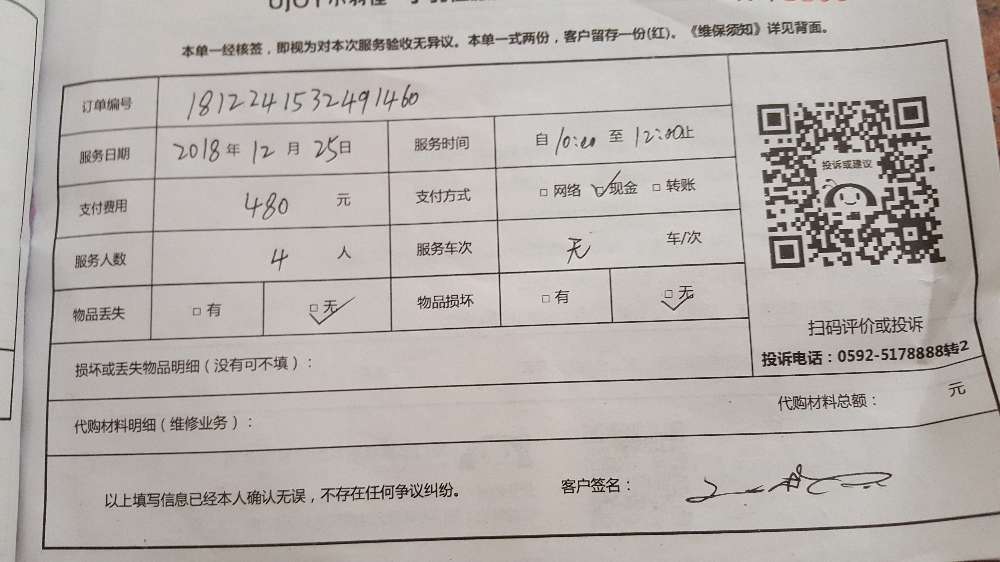 本单一经核签，即视为对本次服务验收无异议。本单一式两份，客户留存一份(红)。《维保须知》详见背面。
订单编号 1812241532491460
服务日期 2018年12月25日 服务时间 自10:00至12:00止
支付费用 480 元 支付方式 □网络 □现金 □转账
服务人数 4 人 服务车次 无 车/次
物品丢失 □有 □无 物品损坏 □有 □无
损坏或丢失物品明细（没有可不填）：
代购材料明细（维修业务）： 代购材料总额： 元
以上填写信息已经本人确认无误，不存在任何争议纠纷。 客户签名：
投诉或建议
扫码评价或投诉
投诉电话：0592-5178888转2